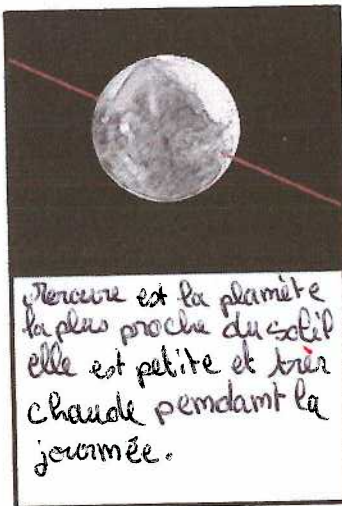 Mercure est la planète
la plus proche du soleil
elle est petite et très
chaude pendant la
journée.